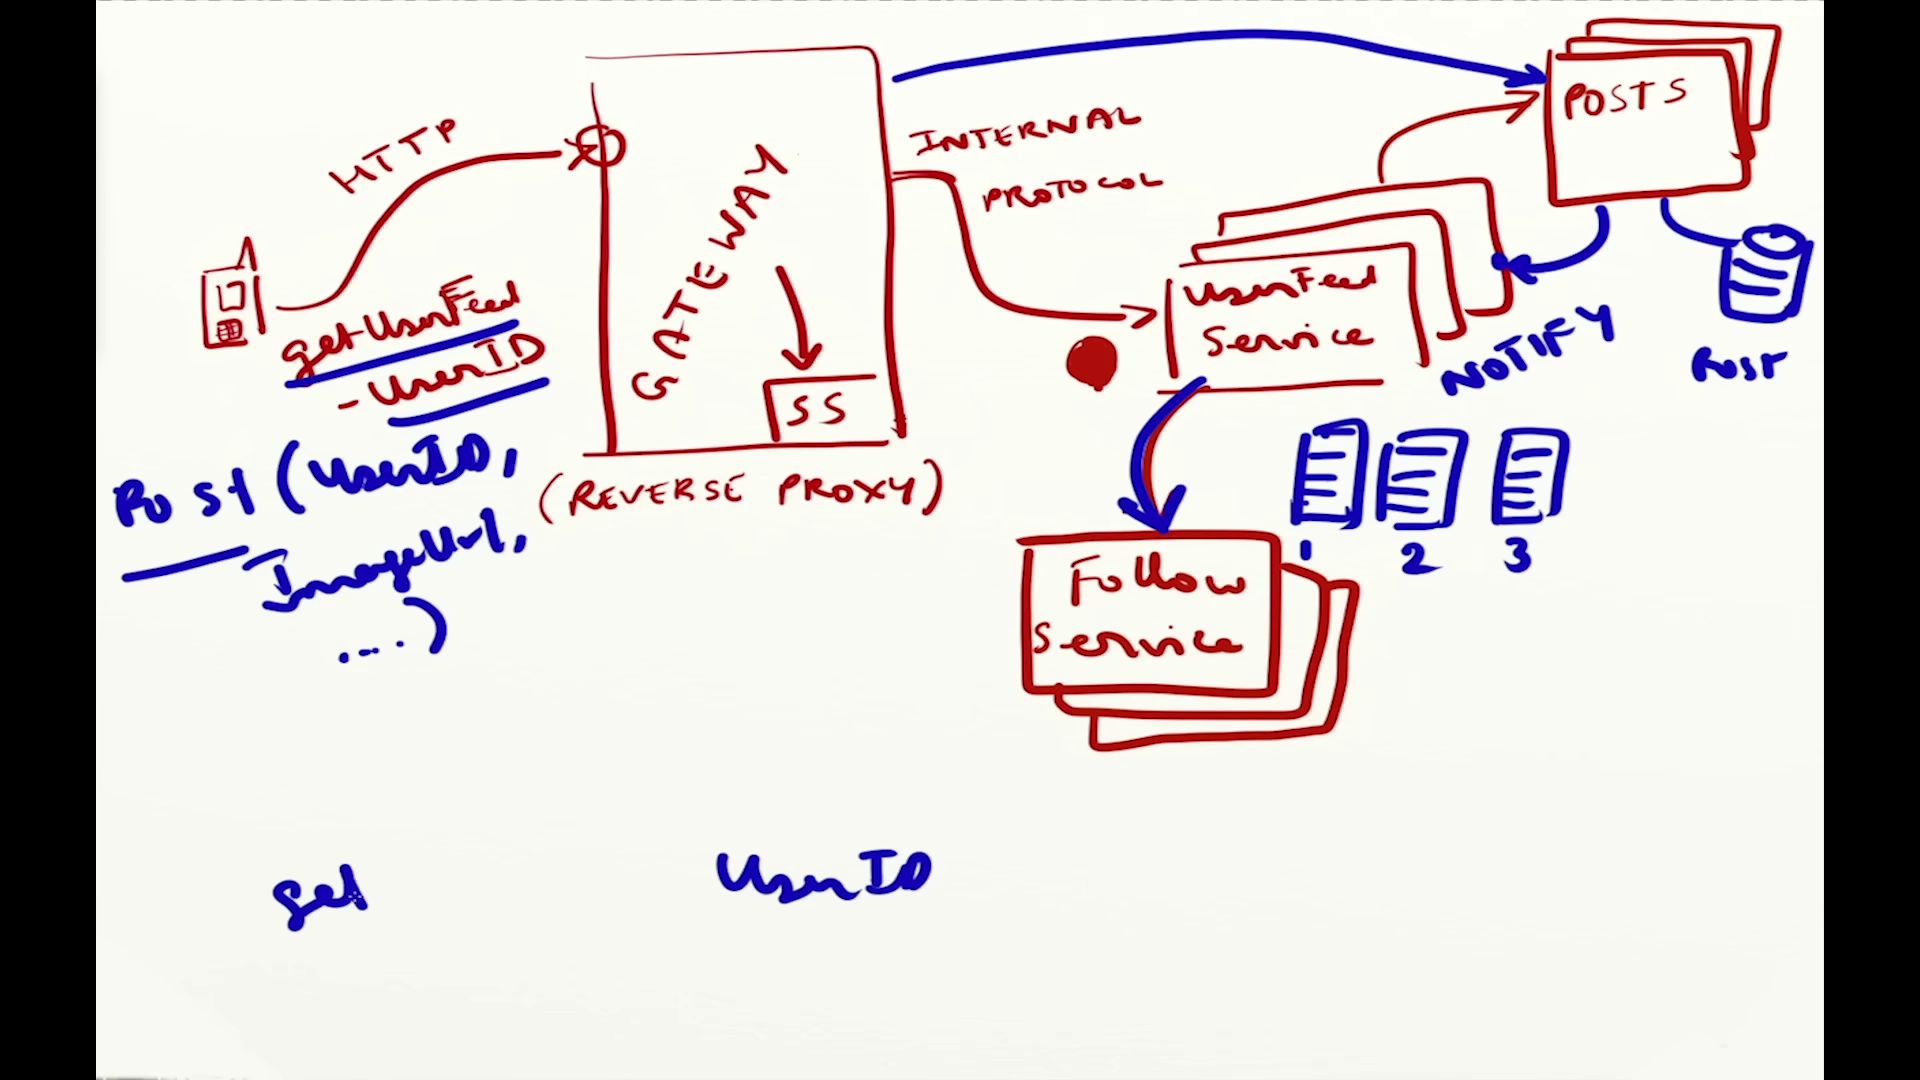 HTTP
getUserFeed
- UserID
Post (UserID,
ImageUrl,
....)
GATEWAY
SS
(REVERSE PROXY)
INTERNAL
PROTOCOL
POSTS
UserFeed
Service
NOTIFY
Post
1 2 3
Follow
Service
get
UserID